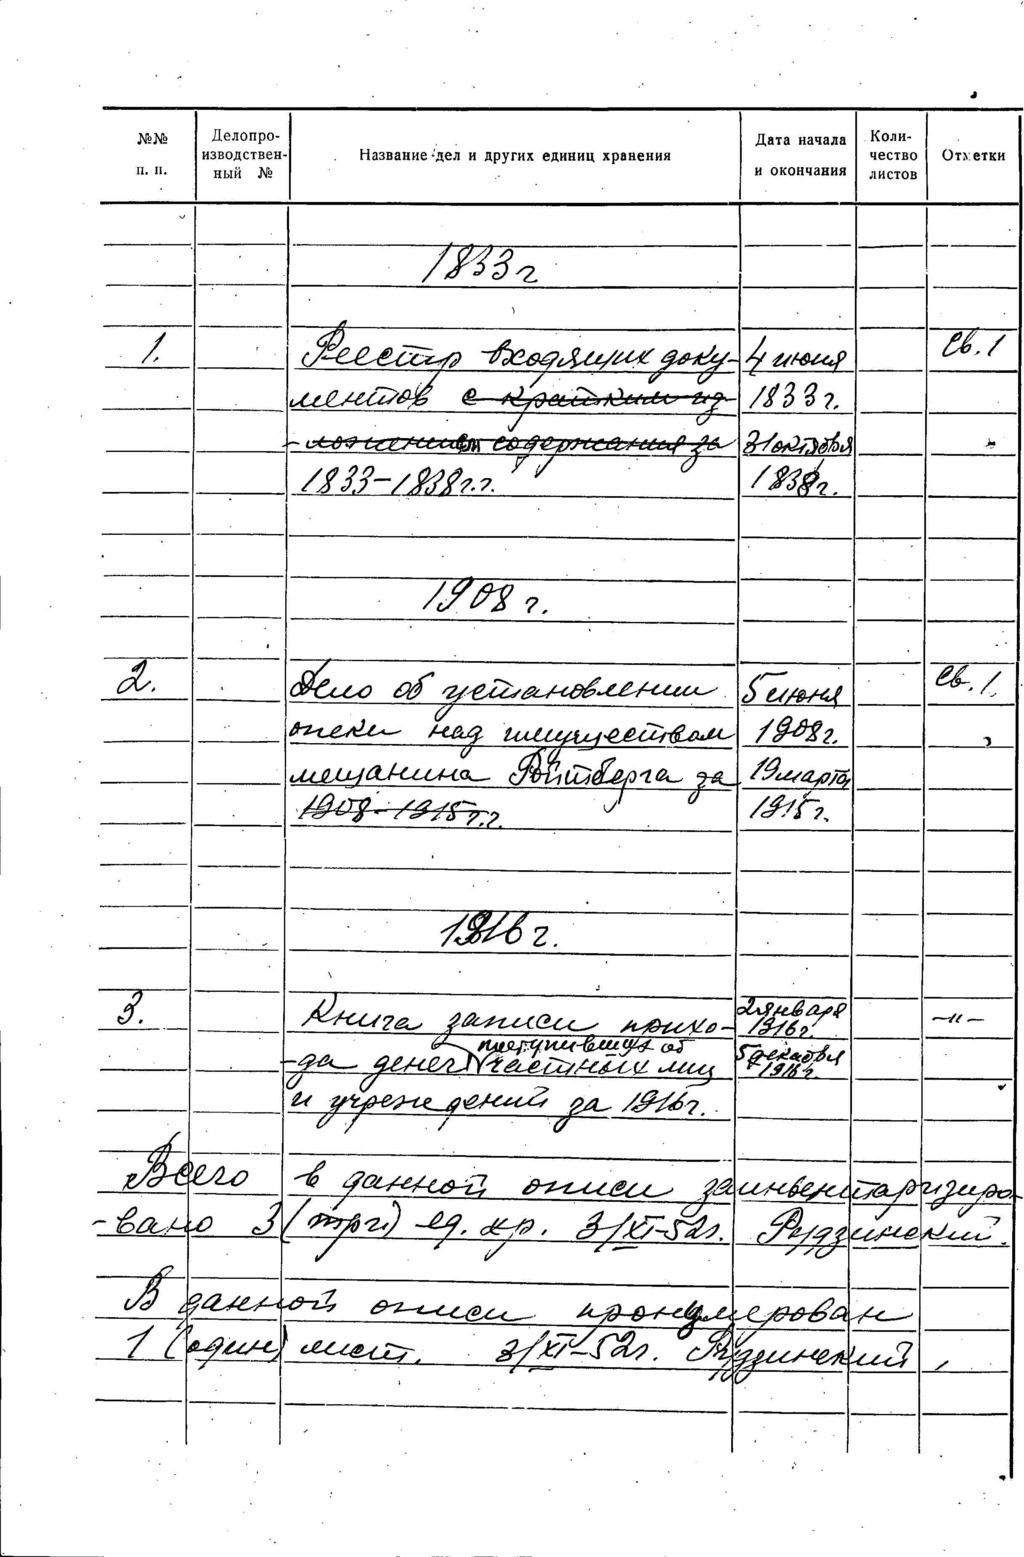 №№ п. п.
Делопро-изводствен-ный №
Название дел и других единиц хранения
Дата начала и окончания
Коли-чество листов
Отметки
1833 г
1. Реестр входящих доку- 4 июня Св. 1
ментов с кратким из- 1833 г.
-ложением содержания за 31 октября
1833-1838 г.г. 1838 г.
1908 г.
2. Дело об установлении 5 июня Св. 1.
опеки над имуществом 1908 г.
мещанина Ройтберга за 19 марта
1908-1915 г.г. 1915 г.
1916 г.
3. Книга записи прихо- 2 января 1916 г. -"-
поступивших от
-да денег частных лиц 5 декабря 1916 г.
и учреждений за 1916 г.
Всего в данной описи заинвентаризиро-
-вано 3 (три) ед. хр. 3/XI-52г. Рудзинский.
В данной описи пронумерован
1 (один) лист. 3/XI-52г. Рудзинский